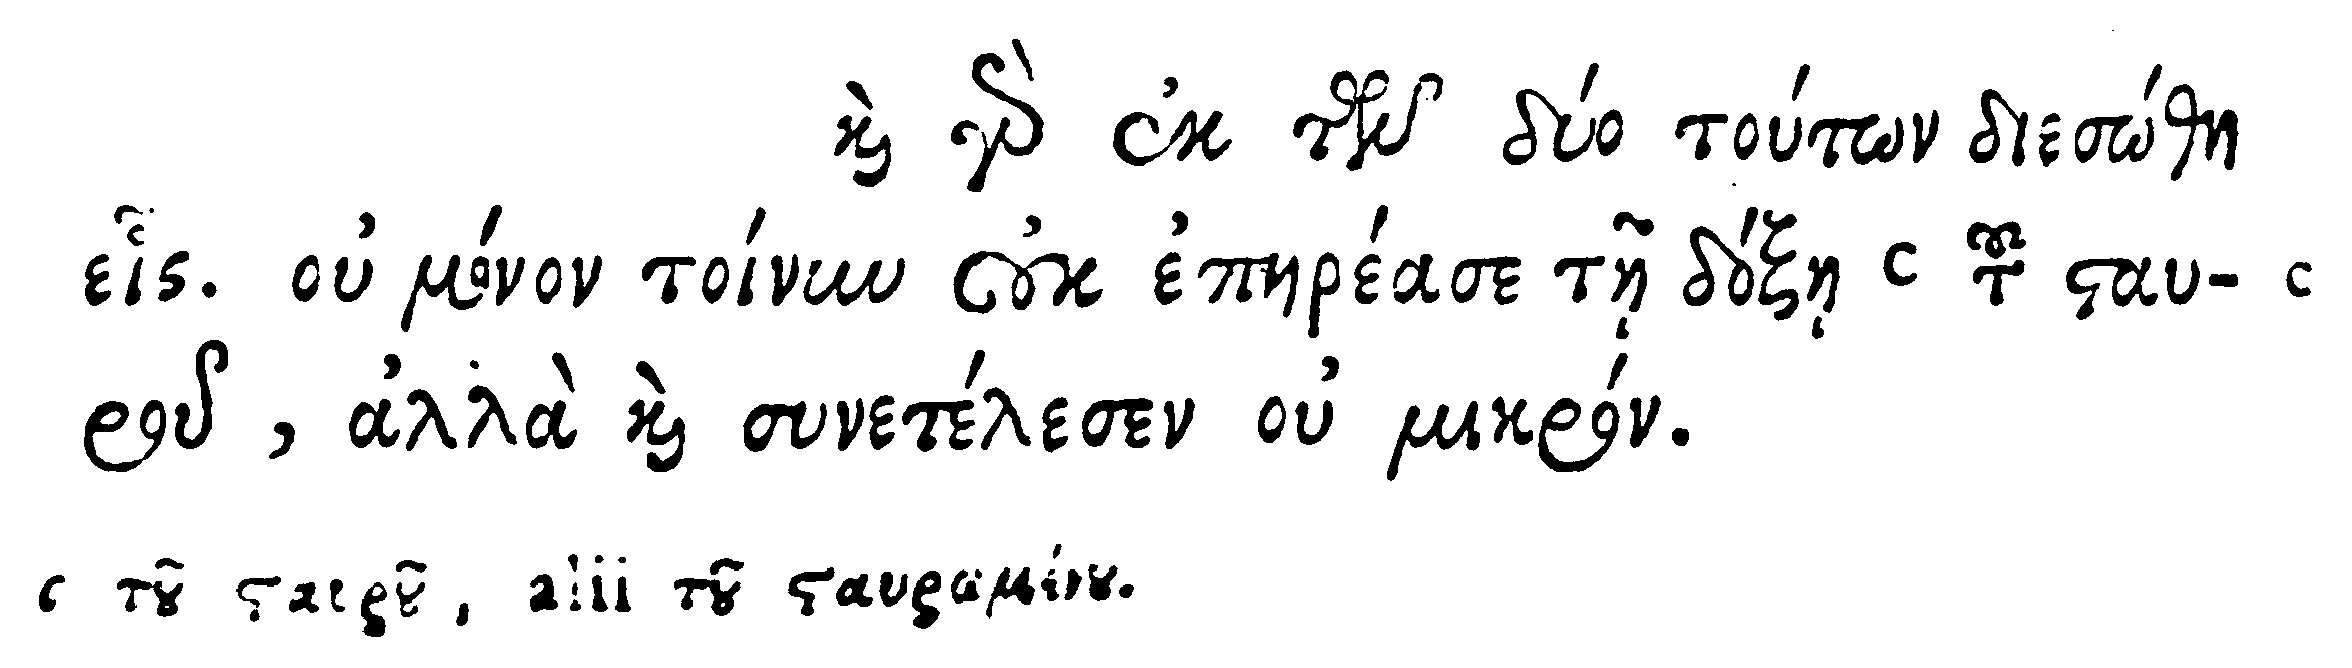 καὶ γὰρ ἐκ τῶν δύο τούτων διεσώθη
εἷς. οὐ μόνον τοίνυν οὐκ ἐπηρέασε τῇ δόξῃ c τοῦ ϛαυ- c
ροῦ, ἀλλὰ καὶ συνετέλεσεν οὐ μικρόν.
c τοῦ ϛαυροῦ, alii τοῦ ϛαυρωμένου.